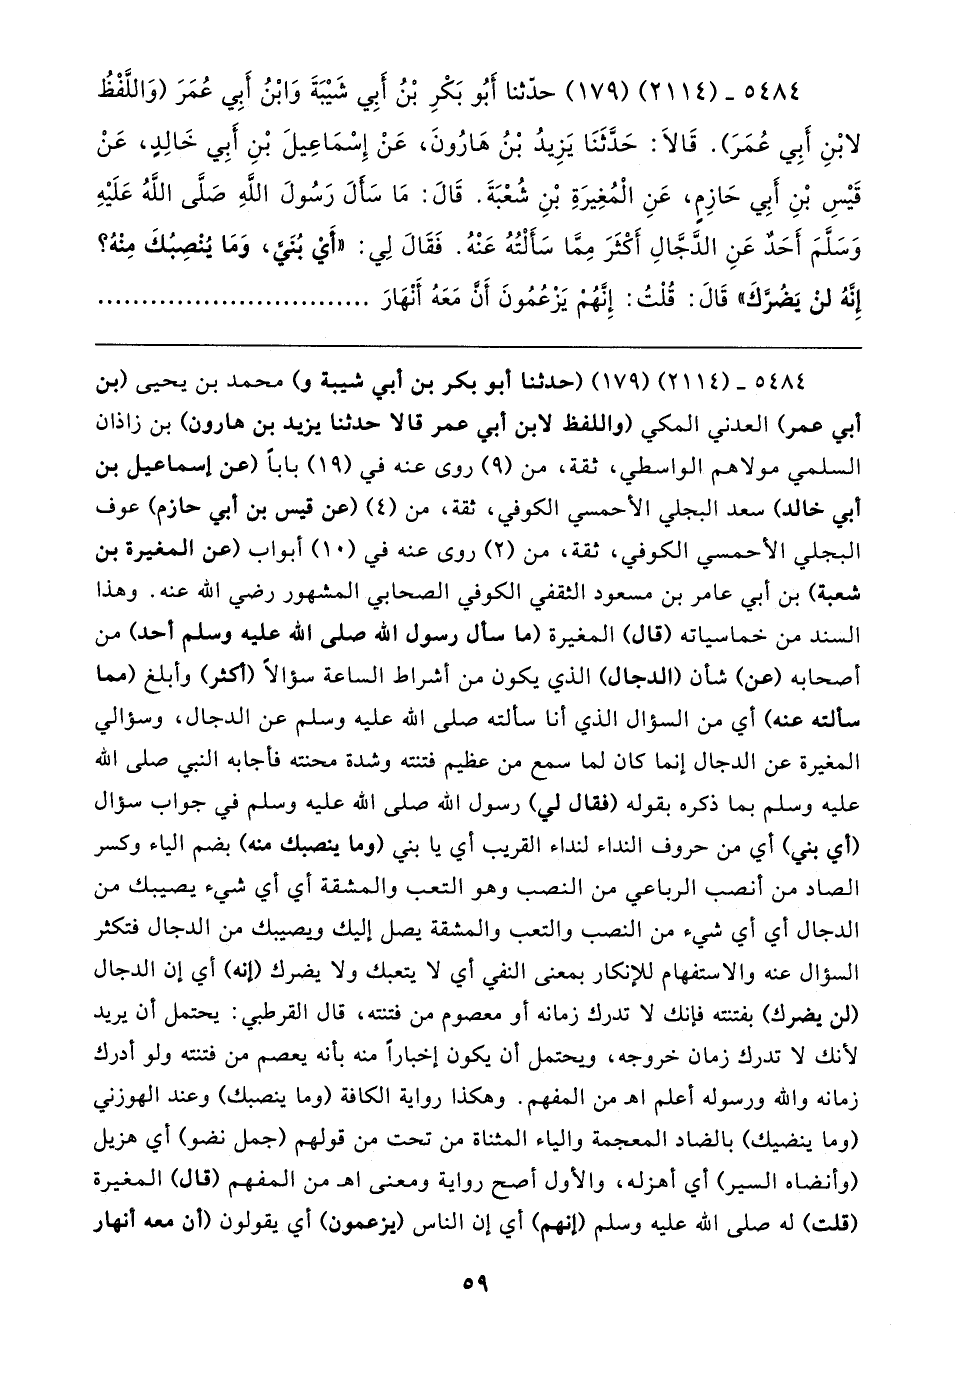 ٥٤٨٤ ـ (٢١١٤) (١٧٩) حدّثنا أَبُو بَكْرِ بْنُ أَبِي شَيْبَةَ وَابْنُ أَبِي عُمَرَ (وَاللَّفْظُ
لابْنِ أَبِي عُمَرَ). قَالَا: حَدَّثَنَا يَزِيدُ بْنُ هَارُونَ، عَنْ إِسْمَاعِيلَ بْنِ أَبِي خَالِدٍ، عَنْ
قَيْسِ بْنِ أَبِي حَازِمٍ، عَنِ الْمُغِيرَةِ بْنِ شُعْبَةَ. قَالَ: مَا سَأَلَ رَسُولَ اللَّهِ صَلَّى اللَّهُ عَلَيْهِ
وَسَلَّمَ أَحَدٌ عَنِ الدَّجَّالِ أَكْثَرَ مِمَّا سَأَلْتُهُ عَنْهُ. فَقَالَ لِي: «أَيْ بُنَيَّ، وَمَا يُنْصِبُكَ مِنْهُ؟
إِنَّهُ لَنْ يَضُرَّكَ» قَالَ: قُلْتُ: إِنَّهُمْ يَزْعُمُونَ أَنَّ مَعَهُ أَنْهَارَ ..............................
٥٤٨٤ ـ (٢١١٤) (١٧٩) (حدثنا أبو بكر بن أبي شيبة و) محمد بن يحيى (بن
أبي عمر) العدني المكي (واللفظ لابن أبي عمر قالا حدثنا يزيد بن هارون) بن زاذان
السلمي مولاهم الواسطي، ثقة، من (٩) روى عنه في (١٩) باباً (عن إسماعيل بن
أبي خالد) سعد البجلي الأحمسي الكوفي، ثقة، من (٤) (عن قيس بن أبي حازم) عوف
البجلي الأحمسي الكوفي، ثقة، من (٢) روى عنه في (١٠) أبواب (عن المغيرة بن
شعبة) بن أبي عامر بن مسعود الثقفي الكوفي الصحابي المشهور رضي الله عنه. وهذا
السند من خماسياته (قال) المغيرة (ما سأل رسول الله صلى الله عليه وسلم أحد) من
أصحابه (عن) شأن (الدجال) الذي يكون من أشراط الساعة سؤالاً (أكثر) وأبلغ (مما
سألته عنه) أي من السؤال الذي أنا سألته صلى الله عليه وسلم عن الدجال، وسؤالي
المغيرة عن الدجال إنما كان لما سمع من عظيم فتنته وشدة محنته فأجابه النبي صلى الله
عليه وسلم بما ذكره بقوله (فقال لي) رسول الله صلى الله عليه وسلم في جواب سؤال
(أي بني) أي من حروف النداء لنداء القريب أي يا بني (وما ينصبك منه) بضم الياء وكسر
الصاد من أنصب الرباعي من النصب وهو التعب والمشقة أي أي شيء يصيبك من
الدجال أي أي شيء من النصب والتعب والمشقة يصل إليك ويصيبك من الدجال فتكثر
السؤال عنه والاستفهام للإنكار بمعنى النفي أي لا يتعبك ولا يضرك (إنه) أي إن الدجال
(لن يضرك) بفتنته فإنك لا تدرك زمانه أو معصوم من فتنته، قال القرطبي: يحتمل أن يريد
لأنك لا تدرك زمان خروجه، ويحتمل أن يكون إخباراً منه بأنه يعصم من فتنته ولو أدرك
زمانه والله ورسوله أعلم اهـ من المفهم. وهكذا رواية الكافة (وما ينصبك) وعند الهوزني
(وما ينضيك) بالضاد المعجمة والياء المثناة من تحت من قولهم (جمل نضو) أي هزيل
(وأنضاه السير) أي أهزله، والأول أصح رواية ومعنى اهـ من المفهم (قال) المغيرة
(قلت) له صلى الله عليه وسلم (إنهم) أي إن الناس (يزعمون) أي يقولون (أن معه أنهار
٥٩